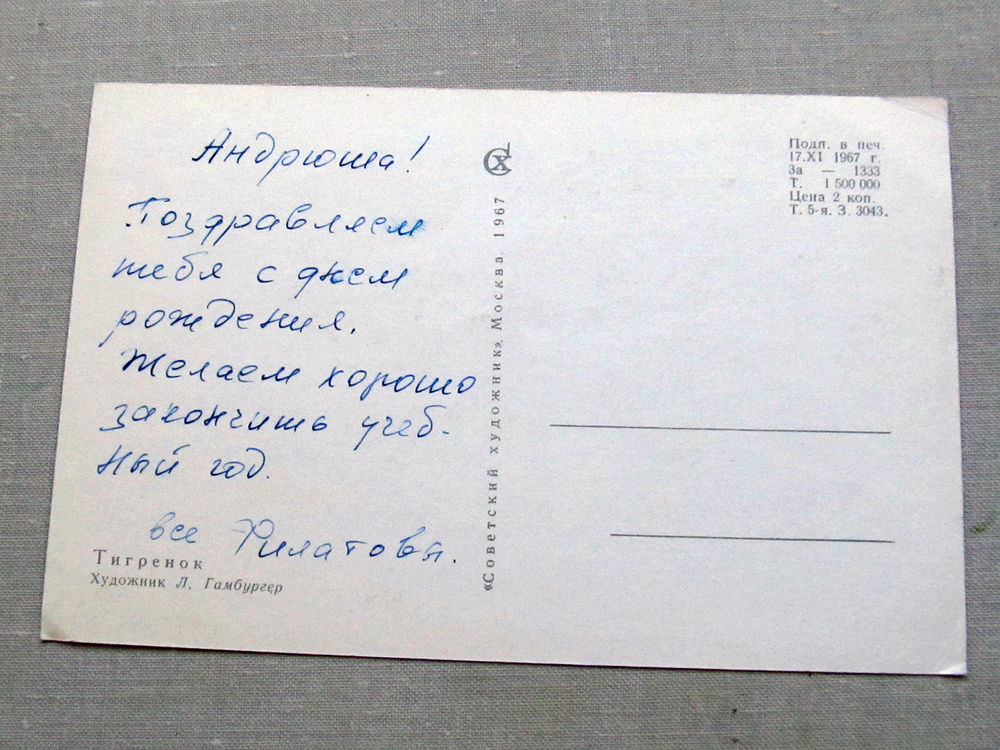 Андрюша!
Поздравляем
тебя с днем
рождения.
Желаем хорошо
закончить учеб-
ный год.
все Филатовы.
Тигренок
Художник Л. Гамбургер
«Советский художник». Москва. 1967
СХ
Подп. в печ.
17.XI 1967 г.
За — 1333
Т. 1 500 000
Цена 2 коп.
Т. 5-я. З. 3043.